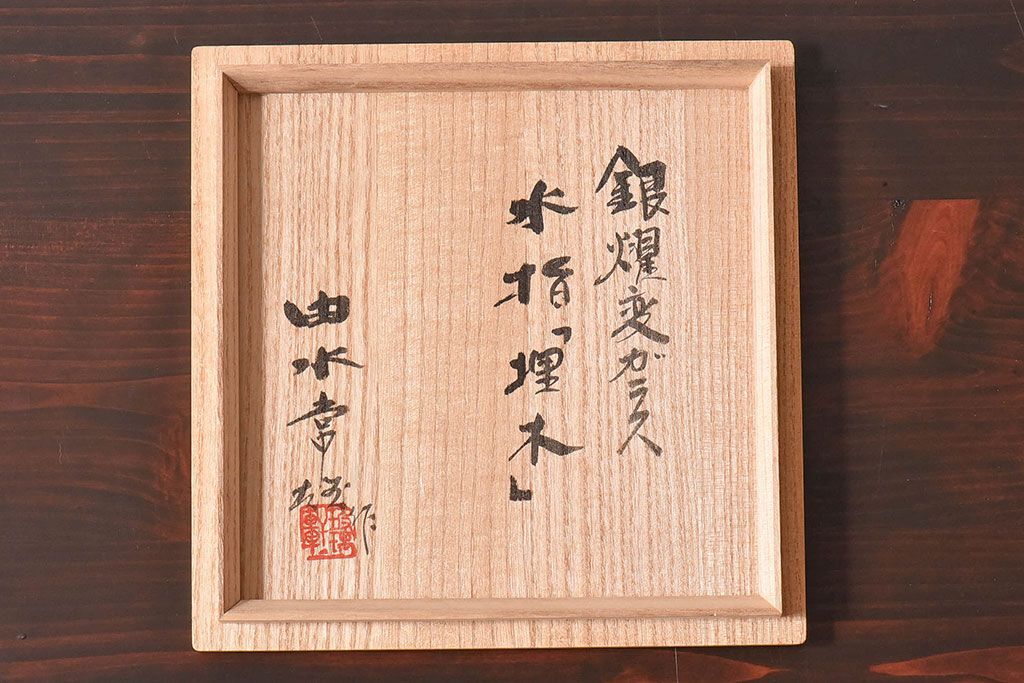 銀燿変ガラス
水指「埋木」
由水常雄作